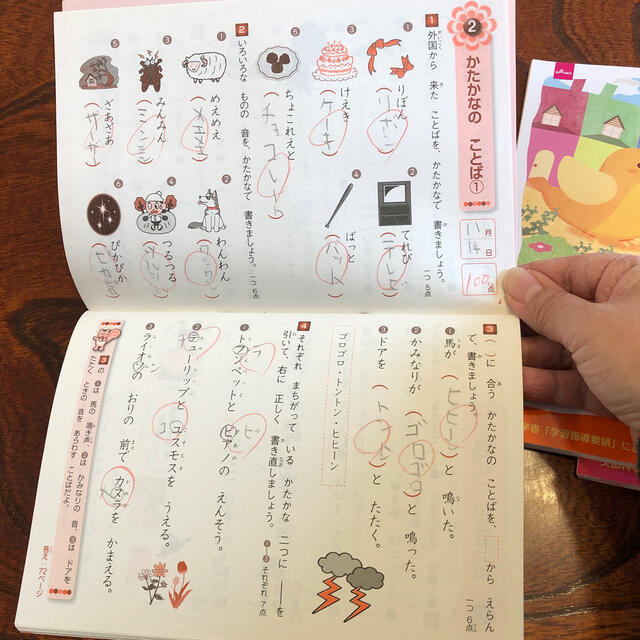 2 かたかなの ことば①
11月
14日
100点
1 外国から 来た ことばを、かたかなで 書きましょう。
一つ5点
① りぼん
(リボン)
② てれび
(テレビ)
③ けえき
(ケーキ)
④ ばっと
(バット)
⑤ ちょこれえと
(チョコレート)
2 いろいろな ものの 音を、かたかなで 書きましょう。
一つ6点
① めえめえ
(メエメエ)
② わんわん
(ワンワン)
③ みんみん
(ミンミン)
④ つるつる
(ツルツル)
⑤ ざあざあ
(ザーザー)
⑥ ぴかぴか
3 ( )に 合う かたかなの ことばを、 から えらん
で、書きましょう。
一つ6点
① 馬が (ヒヒーン)と 鳴いた。
② かみなりが (ゴロゴロ)と 鳴った。
③ ドアを (トントン)と たたく。
ゴロゴロ・トントン・ヒヒーン
4 それぞれ まちがって いる かたかな 二つに ――を
引いて、右に 正しく 書き直しましょう。
①~③それぞれ 7点
① トフンペットと ピアノの えんそう。
② テューリップと ユスモスを うえる。
③ ライオソの おりの 前で カヌラを かまえる。
3の ①は 馬の 鳴き声、②は かみなりの 音、③は ドアを
たたく ときの 音を あらわす ことばだよ。
答え・72ページ
学省「学習指導要領」に